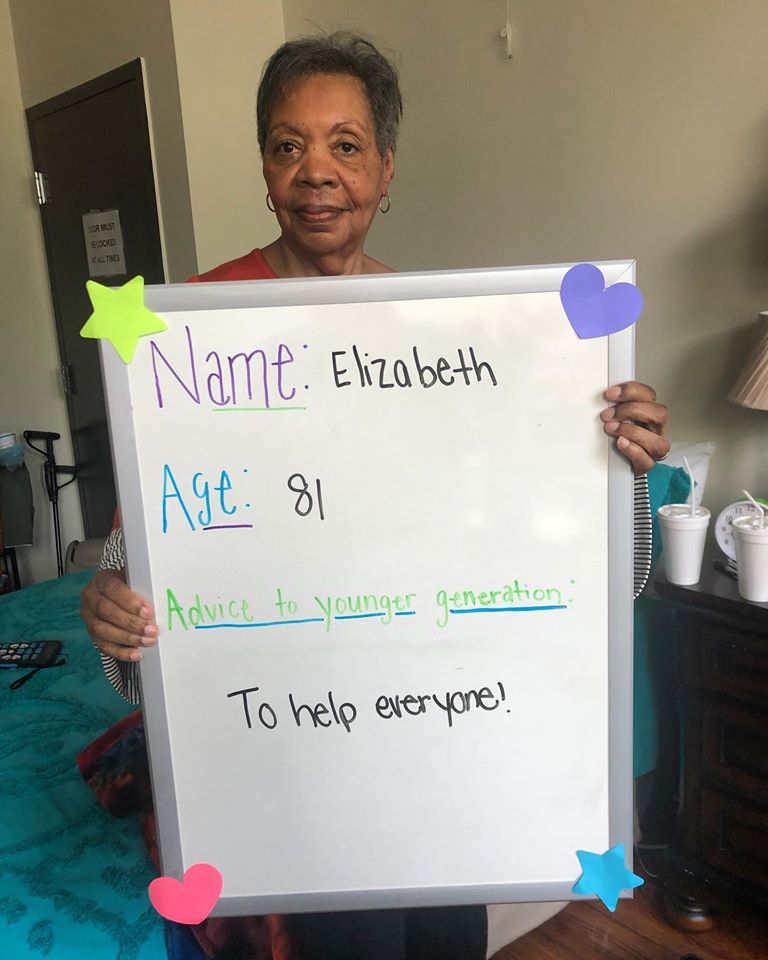 DOOR MUST
BE LOCKED
AT ALL TIMES
Name: Elizabeth
Age: 81
Advice to younger generation:
To help everyone!